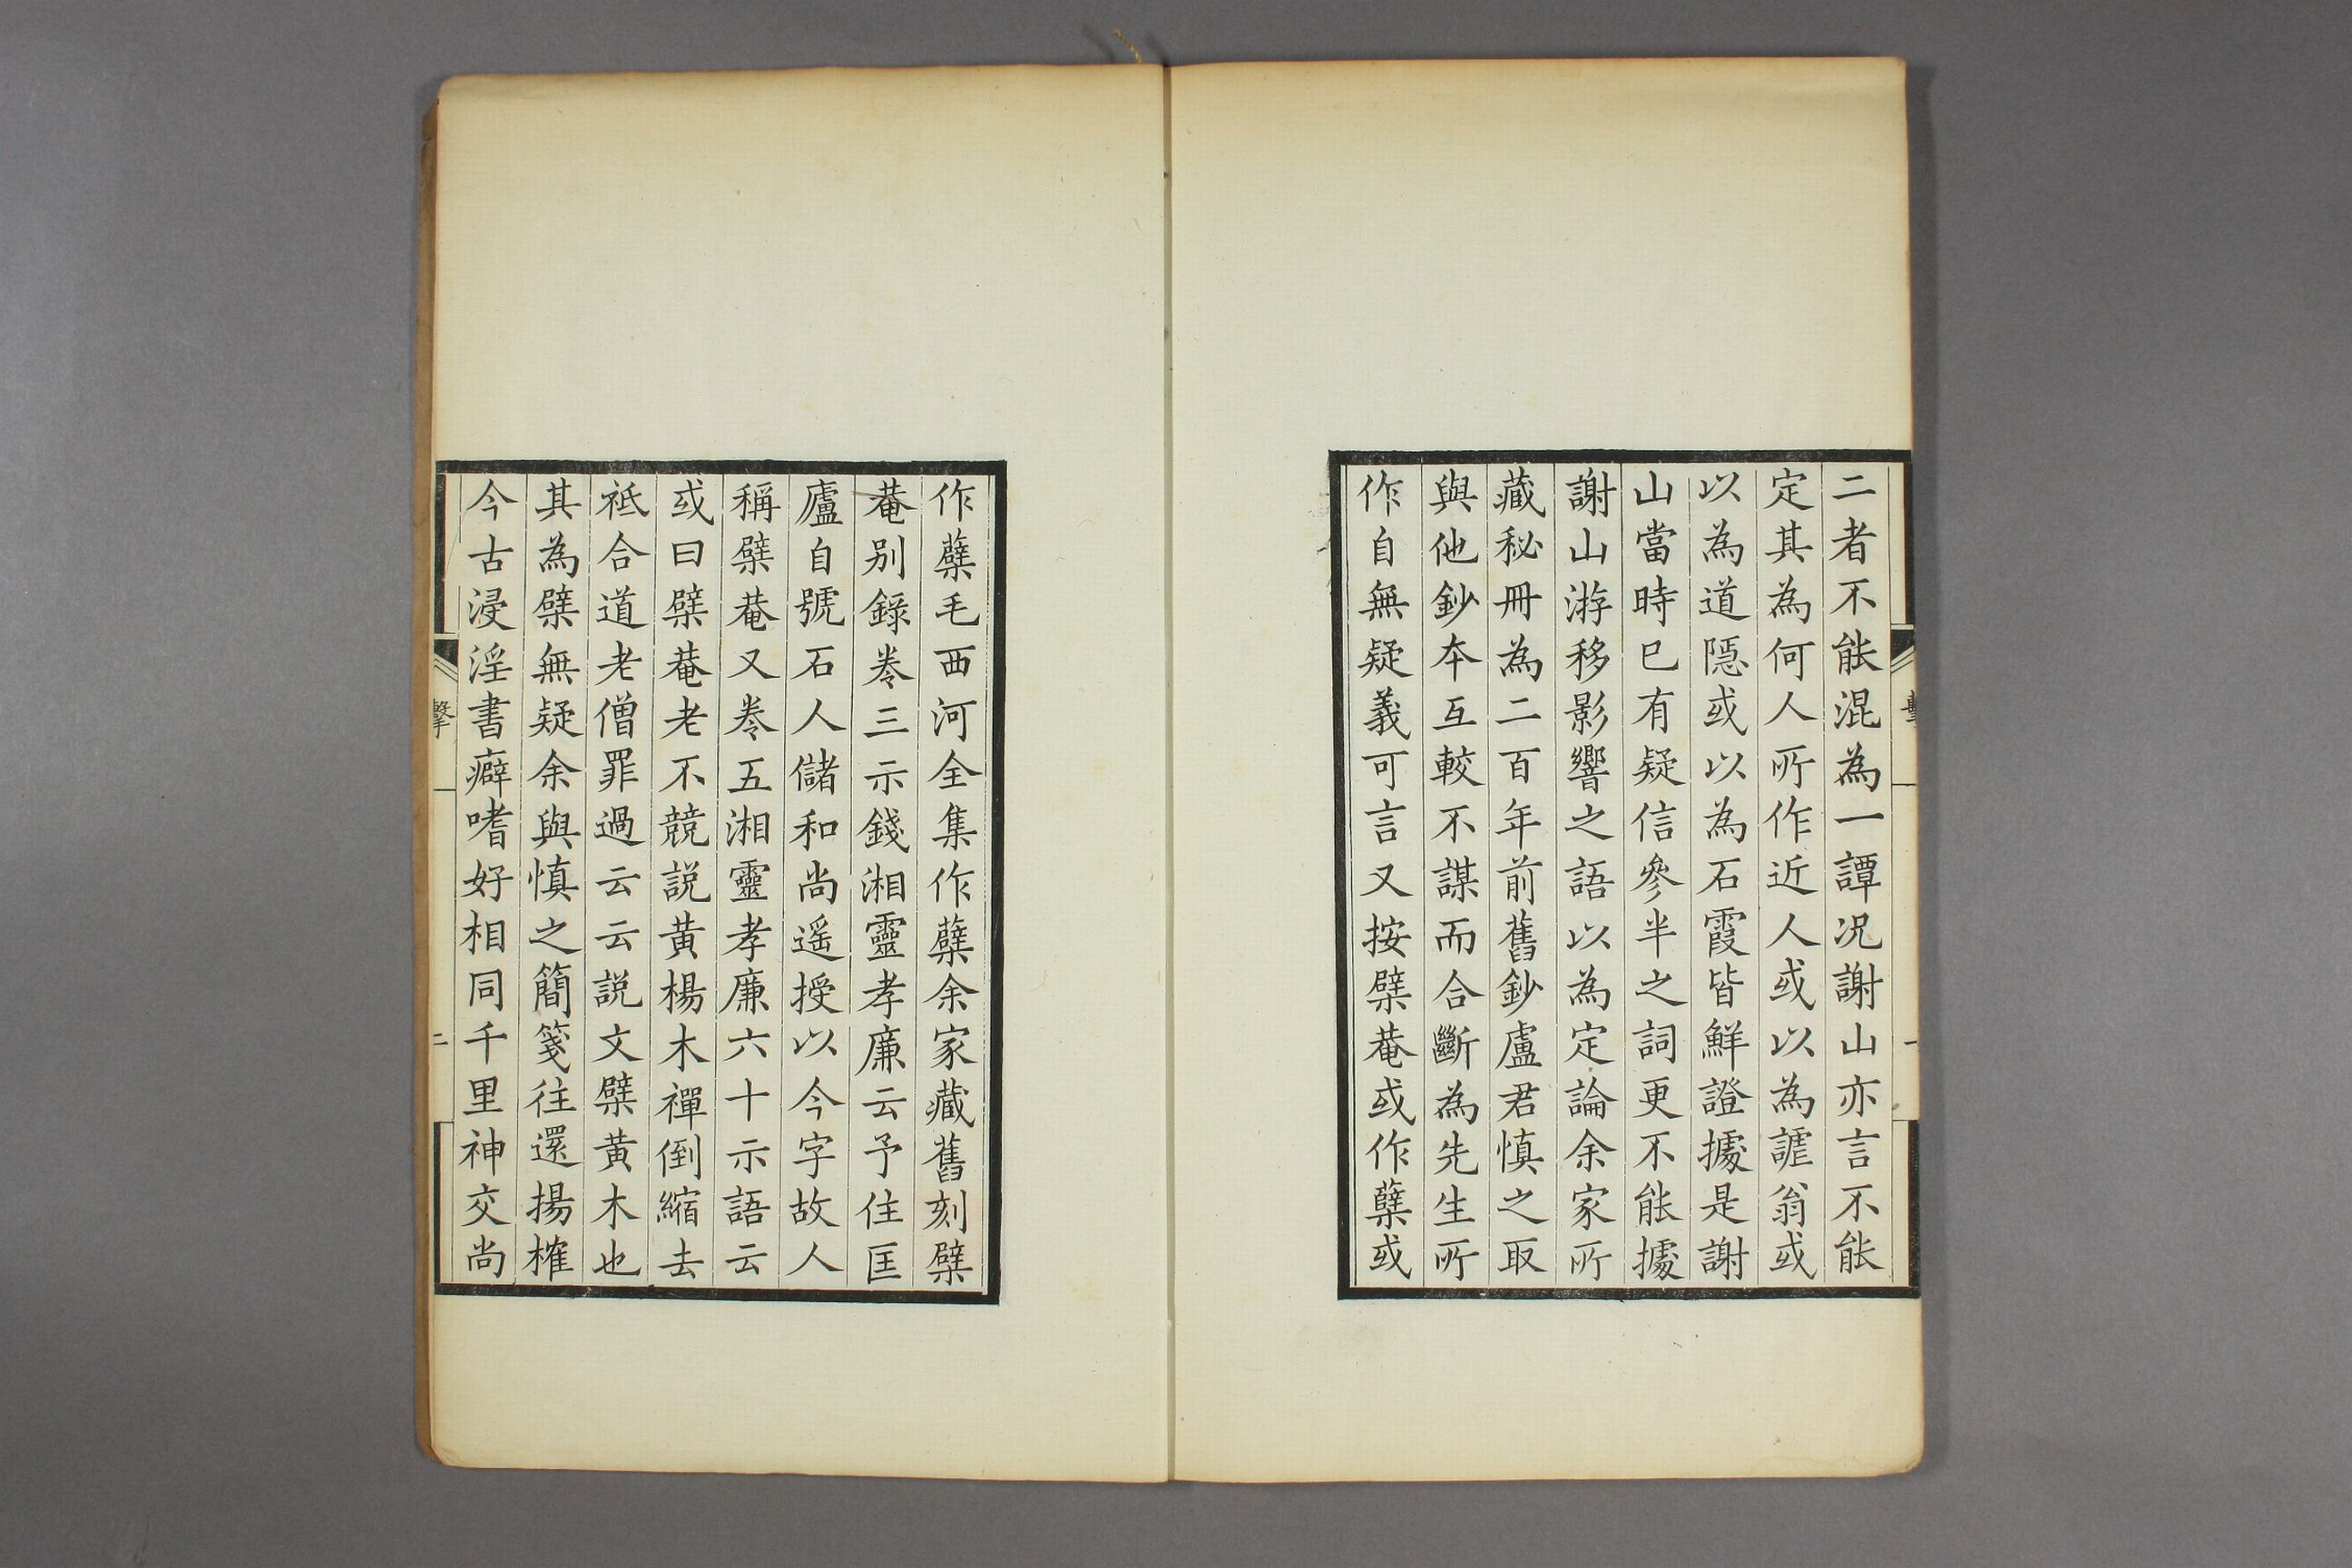 二者不能混為一譚况謝山亦言不能
定其為何人所作近人或以為謔翁或
以為道隱或以為石霞皆鮮證據是謝
山當時已有疑信參半之詞更不能據
謝山游移影響之語以為定論余家所
藏秘冊為二百年前舊鈔盧君慎之取
與他鈔本互較不謀而合斷為先生所
作自無疑義可言又按檗菴或作蘗或
作蘗毛西河全集作蘗余家藏舊刻檗
菴別錄卷三示錢湘靈孝廉云予住匡
廬自號石人儲和尚遥授以今字故人
稱檗菴又卷五湘靈孝廉六十示語云
或曰檗菴老不競説黃楊木禪倒縮去
祗合道老僧罪過云云説文檗黃木也
其為檗無疑余與慎之簡箋往還揚搉
今古浸淫書癖嗜好相同千里神交尚
二